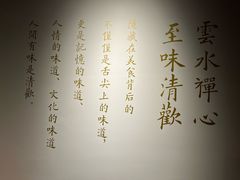 雲水禪心
至味清歡
隱藏在美食背后的
不僅僅是舌尖上的味道，
更是記憶的味道、
人情的味道、文化的味道
人間有味是清歡。